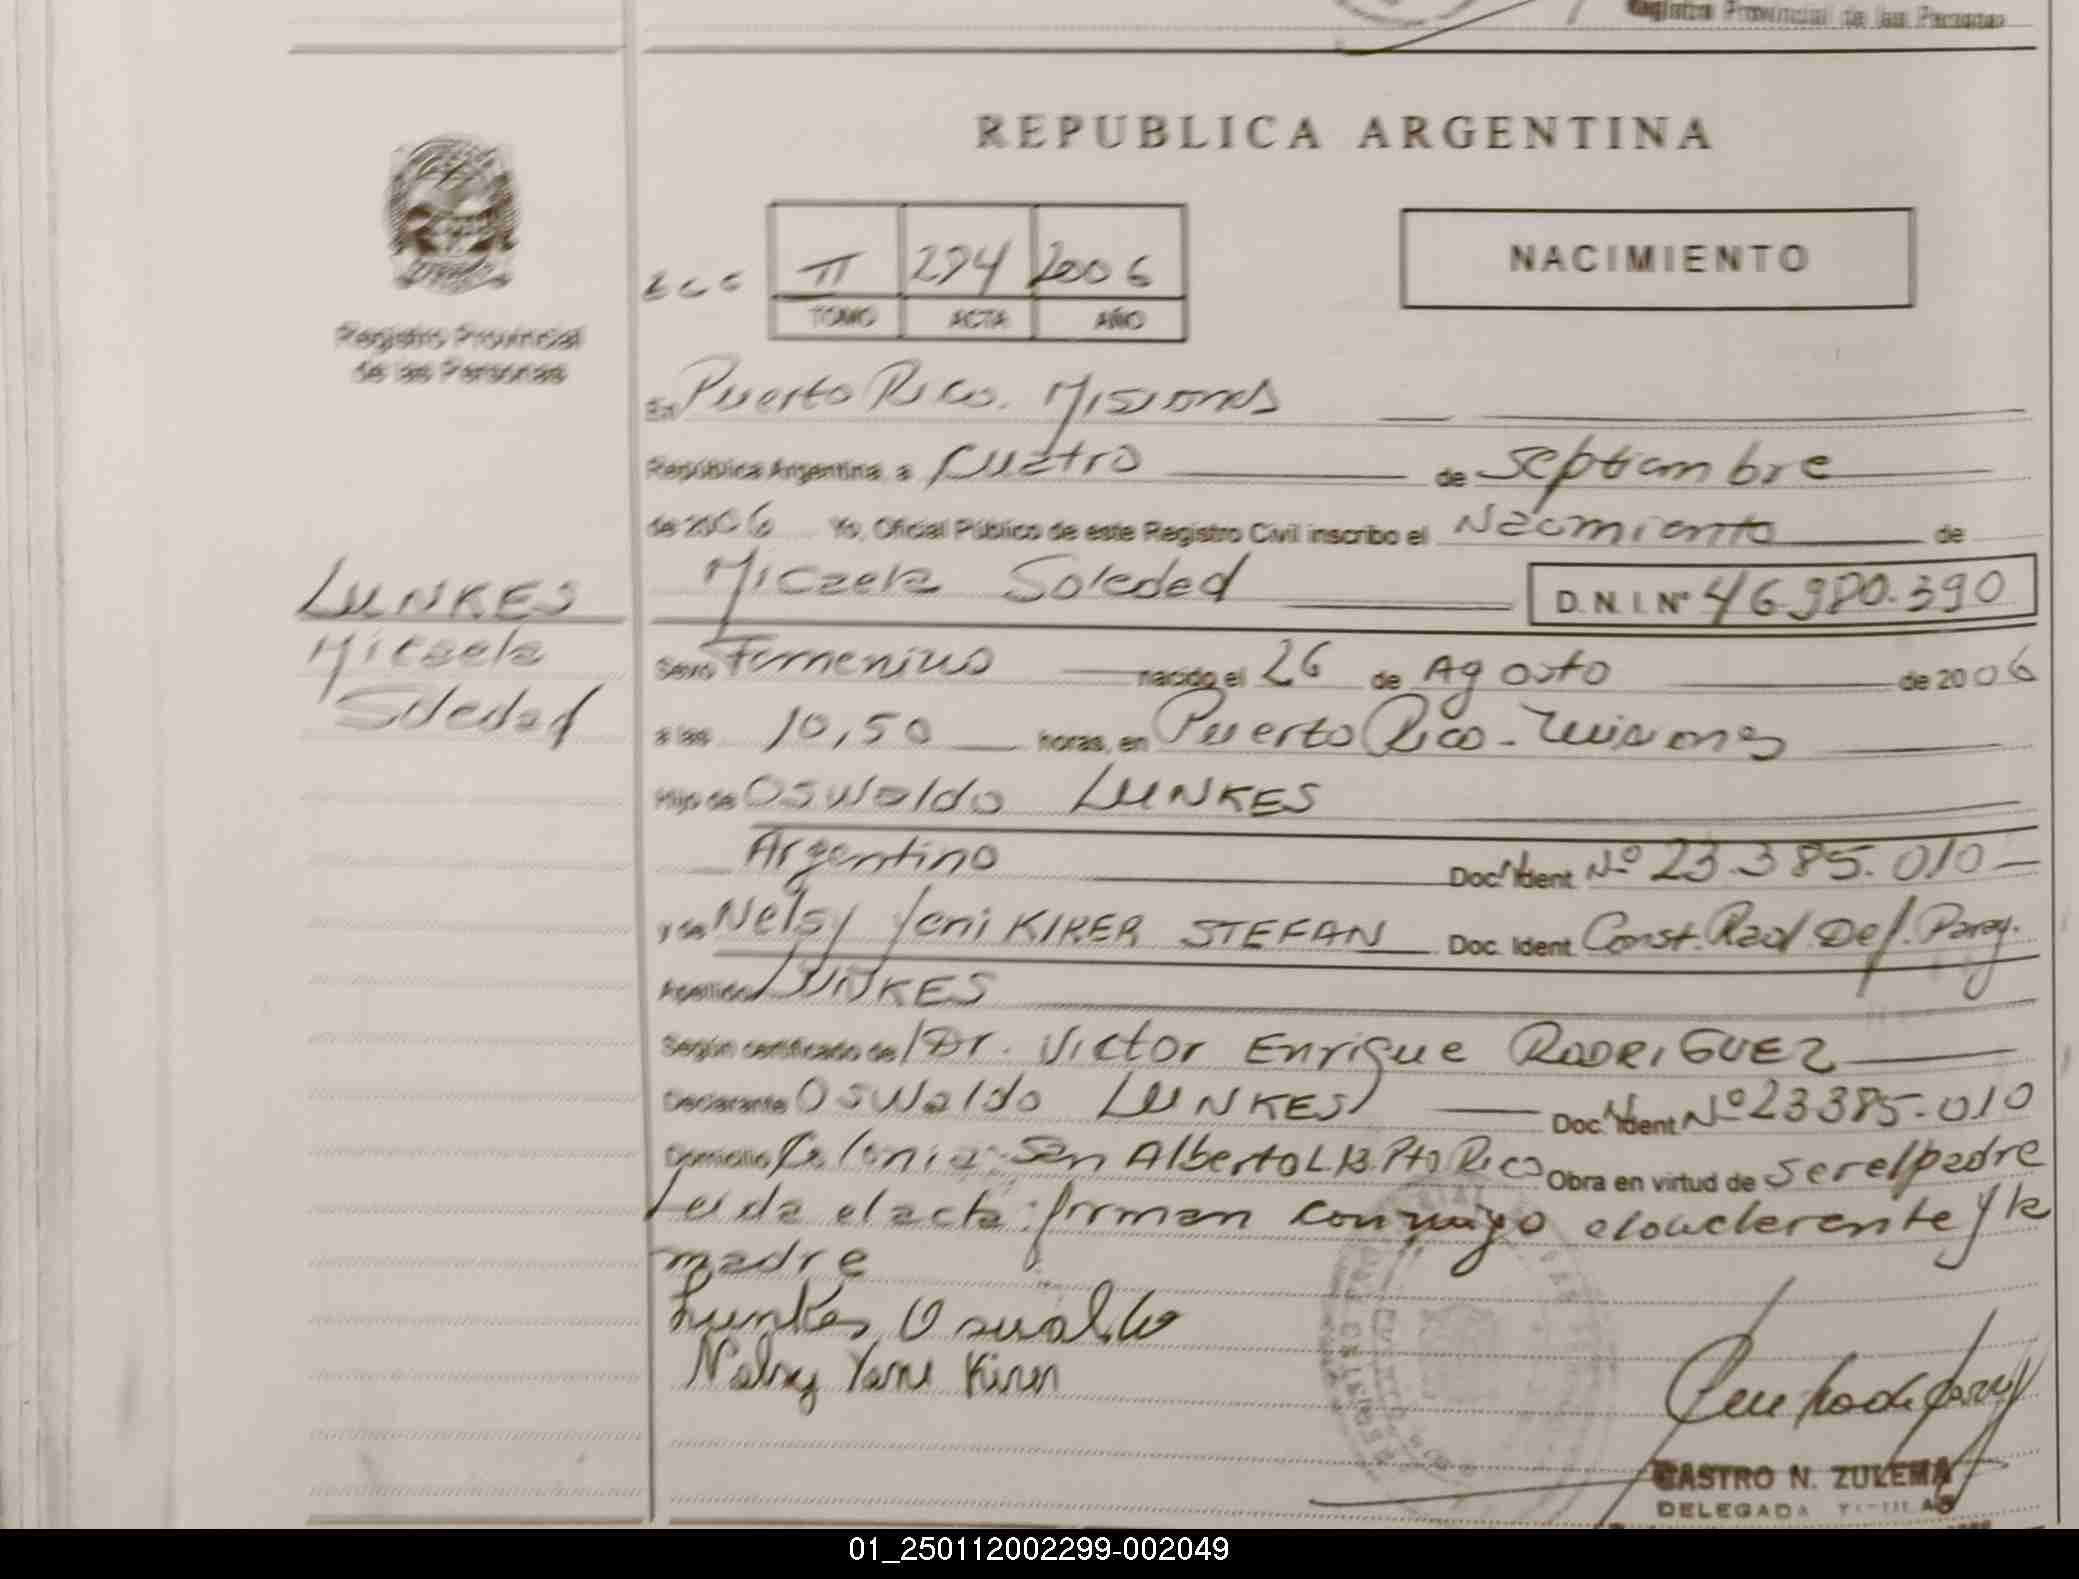 Registro Provincial de las Personas
REPUBLICA ARGENTINA
II 294 2006
TOMO ACTA AÑO
NACIMIENTO
Registro Provincial
de las Personas
En Puerto Rico. Misiones
República Argentina, a Cuatro de Septiembre
de 2006 Yo, Oficial Público de este Registro Civil inscribo el Nacimiento de
Micaela Soledad D.N.I. Nº 46.980.390
LUNKES
Micaela
Soledad
Sexo Femenino nacido el 26 de Agosto de 2006
a las 10,50 horas, en Puerto Rico - Misiones
Hijo de Oswaldo LUNKES
Argentino Doc. Ident. Nº 23.385.010
y de Nelsy Yeni KIRER STEFAN Doc. Ident. Const. Rad. Def. Parag.
Apellido LUNKES
Según certificado de Dr. Victor Enrique RODRIGUEZ
Declarante Oswaldo LUNKES Doc. Ident. Nº 23385.010
Domicilio Colonia San Alberto L 13 Pto Rico Obra en virtud de ser el padre
Leida el acta firman conmigo el declarante y la
madre
Lunkes Oswaldo
Nelsy Yane Kirer
CASTRO N. ZULEMA
DELEGADA
01_250112002299-002049